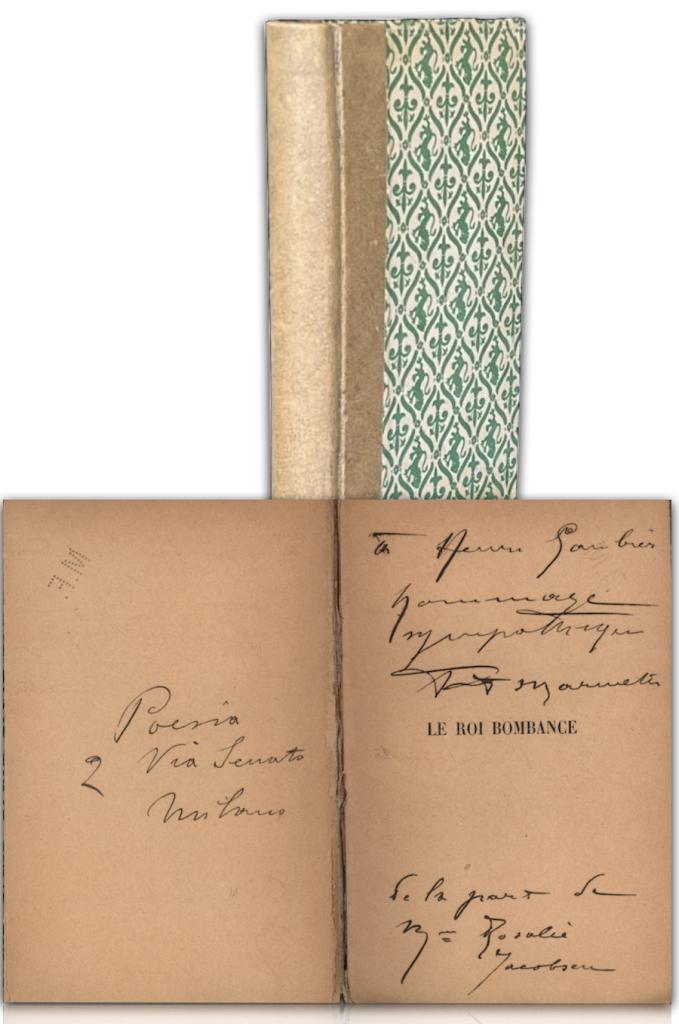 M.F.
Poesia
2 Via Senato
Milano
à Henri
hommage
sympathique
F.T. Marinetti
LE ROI BOMBANCE
de la part de
Mme Rosalie
Jacobsen